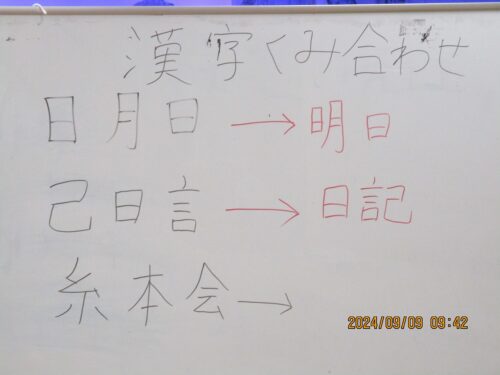 漢字くみ合わせ
日月日→明日
己日言→日記
糸本会→
2024/09/09 09:42